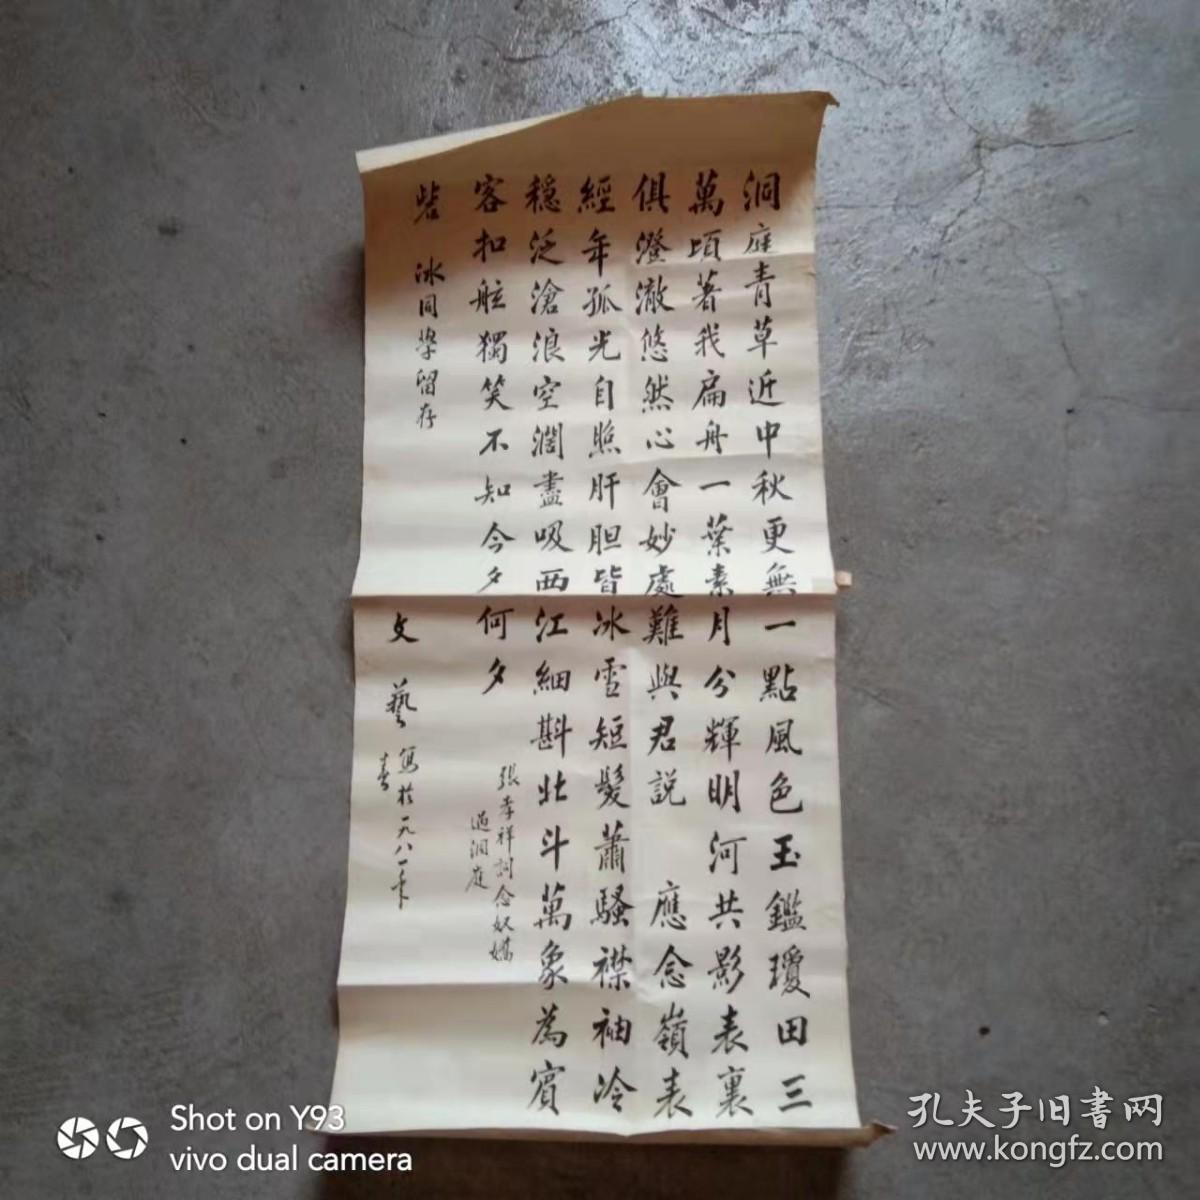 洞庭青草近中秋更無一點風色玉鑑瓊田三
萬頃著我扁舟一葉素月分輝明河共影表裏
俱澄澈悠然心會妙處難與君説 應念嶺表
經年孤光自照肝胆皆冰雪短髮蕭騷襟袖冷
穩泛滄浪空濶盡吸西江細斟北斗萬象為賓
客扣舷獨笑不知今夕何夕
張孝祥詞念奴嬌
過洞庭
冰同學留存
文藝寫於一九八一年
春
Shot on Y93
vivo dual camera
孔夫子旧書网
www.kongfz.com